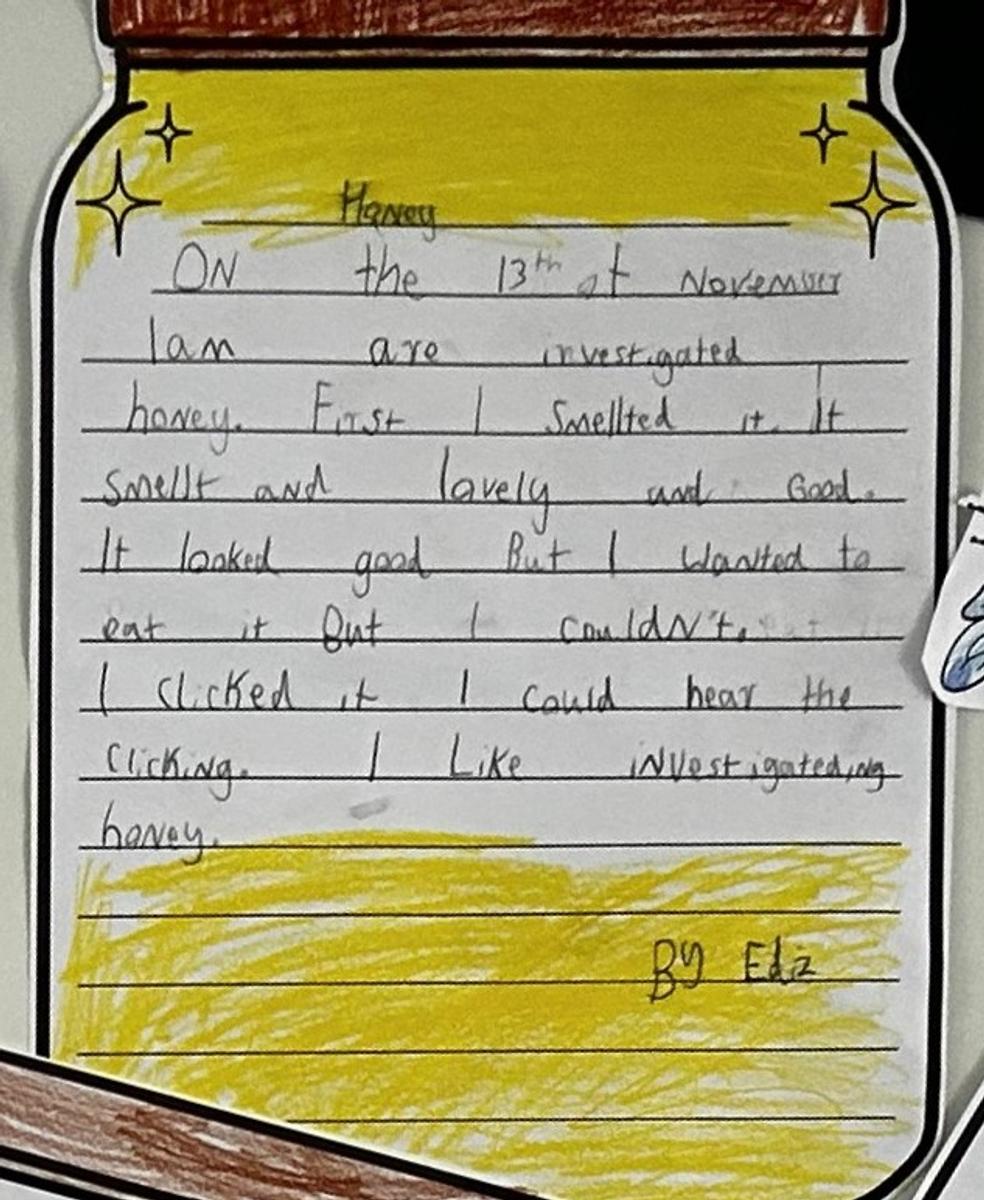 Honey
ON the 13th of November
I am are investigated
honey. First I smellted it. It
smellt and lovely and Good.
It looked good But I wanted to
eat it But I couldN't.
I clicked it I could hear the
clicking. I Like iNvestigateding
honey.
By Ediz